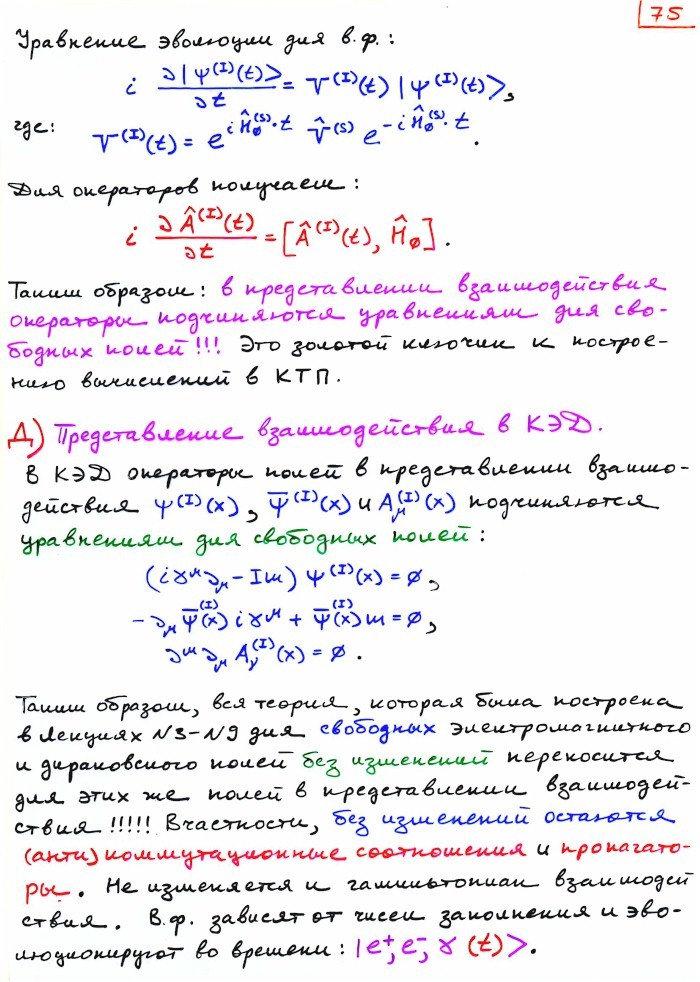 75
Уравнение эволюции для в.ф.:
i ∂|Ψ^(I)(t)>/∂t = V^(I)(t) |Ψ^(I)(t)>,
где: V^(I)(t) = e^{iĤ_0^(S)·t} V̂^(S) e^{-iĤ_0^(S)·t}.
Для операторов получаем:
i ∂Â^(I)(t)/∂t = [Â^(I)(t), Ĥ_0].
Таким образом: в представлении взаимодействия
операторы подчиняются уравнениям для сво-
бодных полей!!! Это золотой ключик к построе-
нию вычислений в КТП.
Д) Представление взаимодействия в КЭД.
В КЭД операторы полей в представлении взаимо-
действия Ψ^(I)(x), Ψ̄^(I)(x) и A_μ^(I)(x) подчиняются
уравнениям для свободных полей:
(iγ^μ∂_μ - Im) Ψ^(I)(x) = 0,
-∂_μ Ψ̄^(I)(x) iγ^μ + Ψ̄^(I)(x) m = 0,
∂^μ∂_μ A_ν^(I)(x) = 0.
Таким образом, вся теория, которая была построена
в Лекциях N3-N9 для свободных электромагнитного
и дираковского полей без изменений переносится
для этих же полей в представлении взаимодей-
ствия!!!!! Вчастности, без изменений остаются
(анти)коммутационные соотношения и пропагато-
ры. Не изменяется и гамильтониан взаимодей
ствия. В.ф. зависят от чисел заполнения и эво-
люционируют во времени: |e⁺, e⁻, γ (t)>.